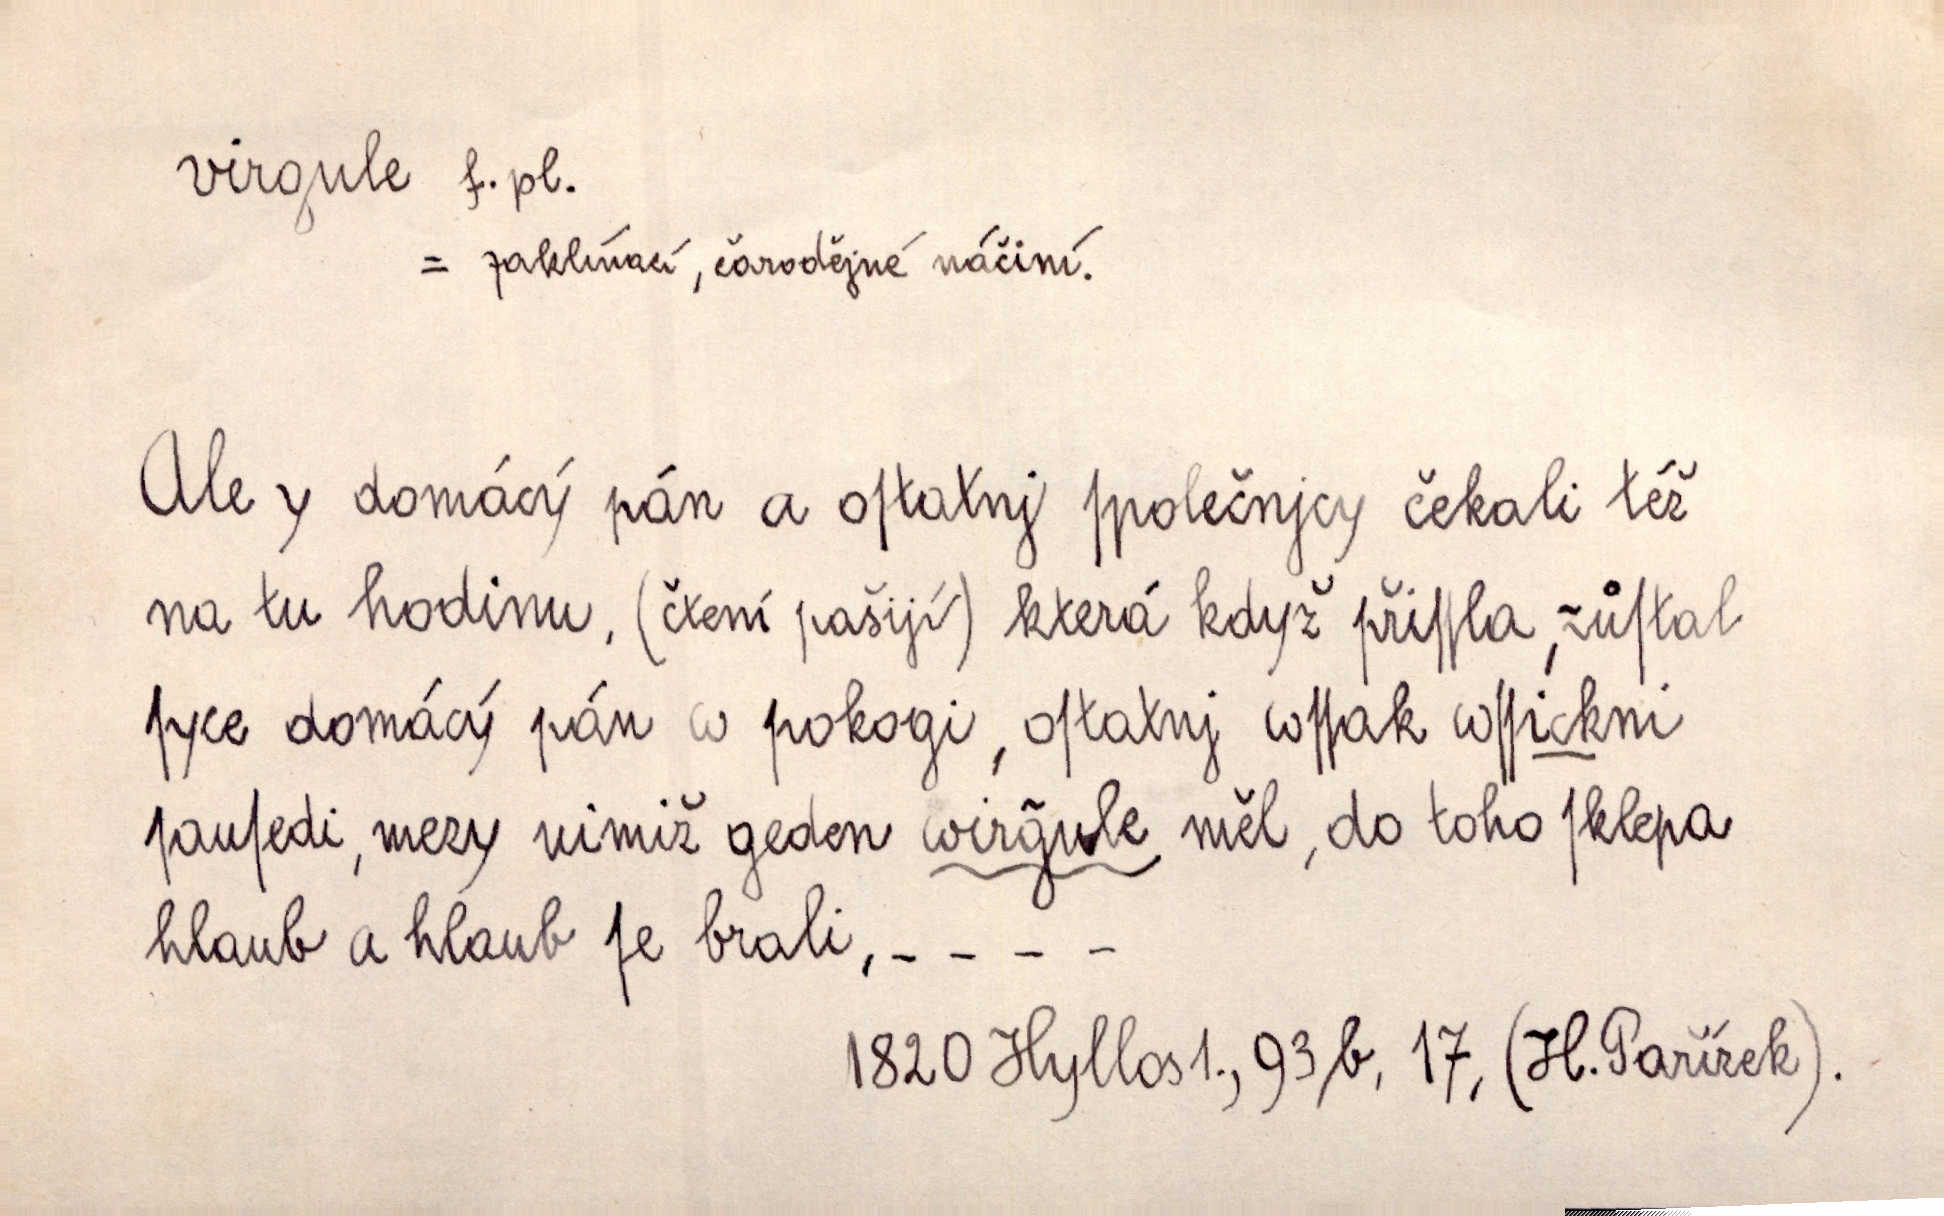 virgule f. pl.
= zaklínací, čarodějné náčiní.
Ale y domácý pán a oſtatnj ſpolečnjcy čekali též
na tu hodinu, (čtení pašijí) která když přiſſla, zůſtal
ſyce domácý pán w pokogi, oſtatnj wſſak wſſickni
ſauſedi, mezy nimiž geden wirg̃ule měl, do toho ſklepa
hlaub a hlaub ſe brali, – – – –
1820 Hyllos 1., 93/b, 17, (H. Pařízek).